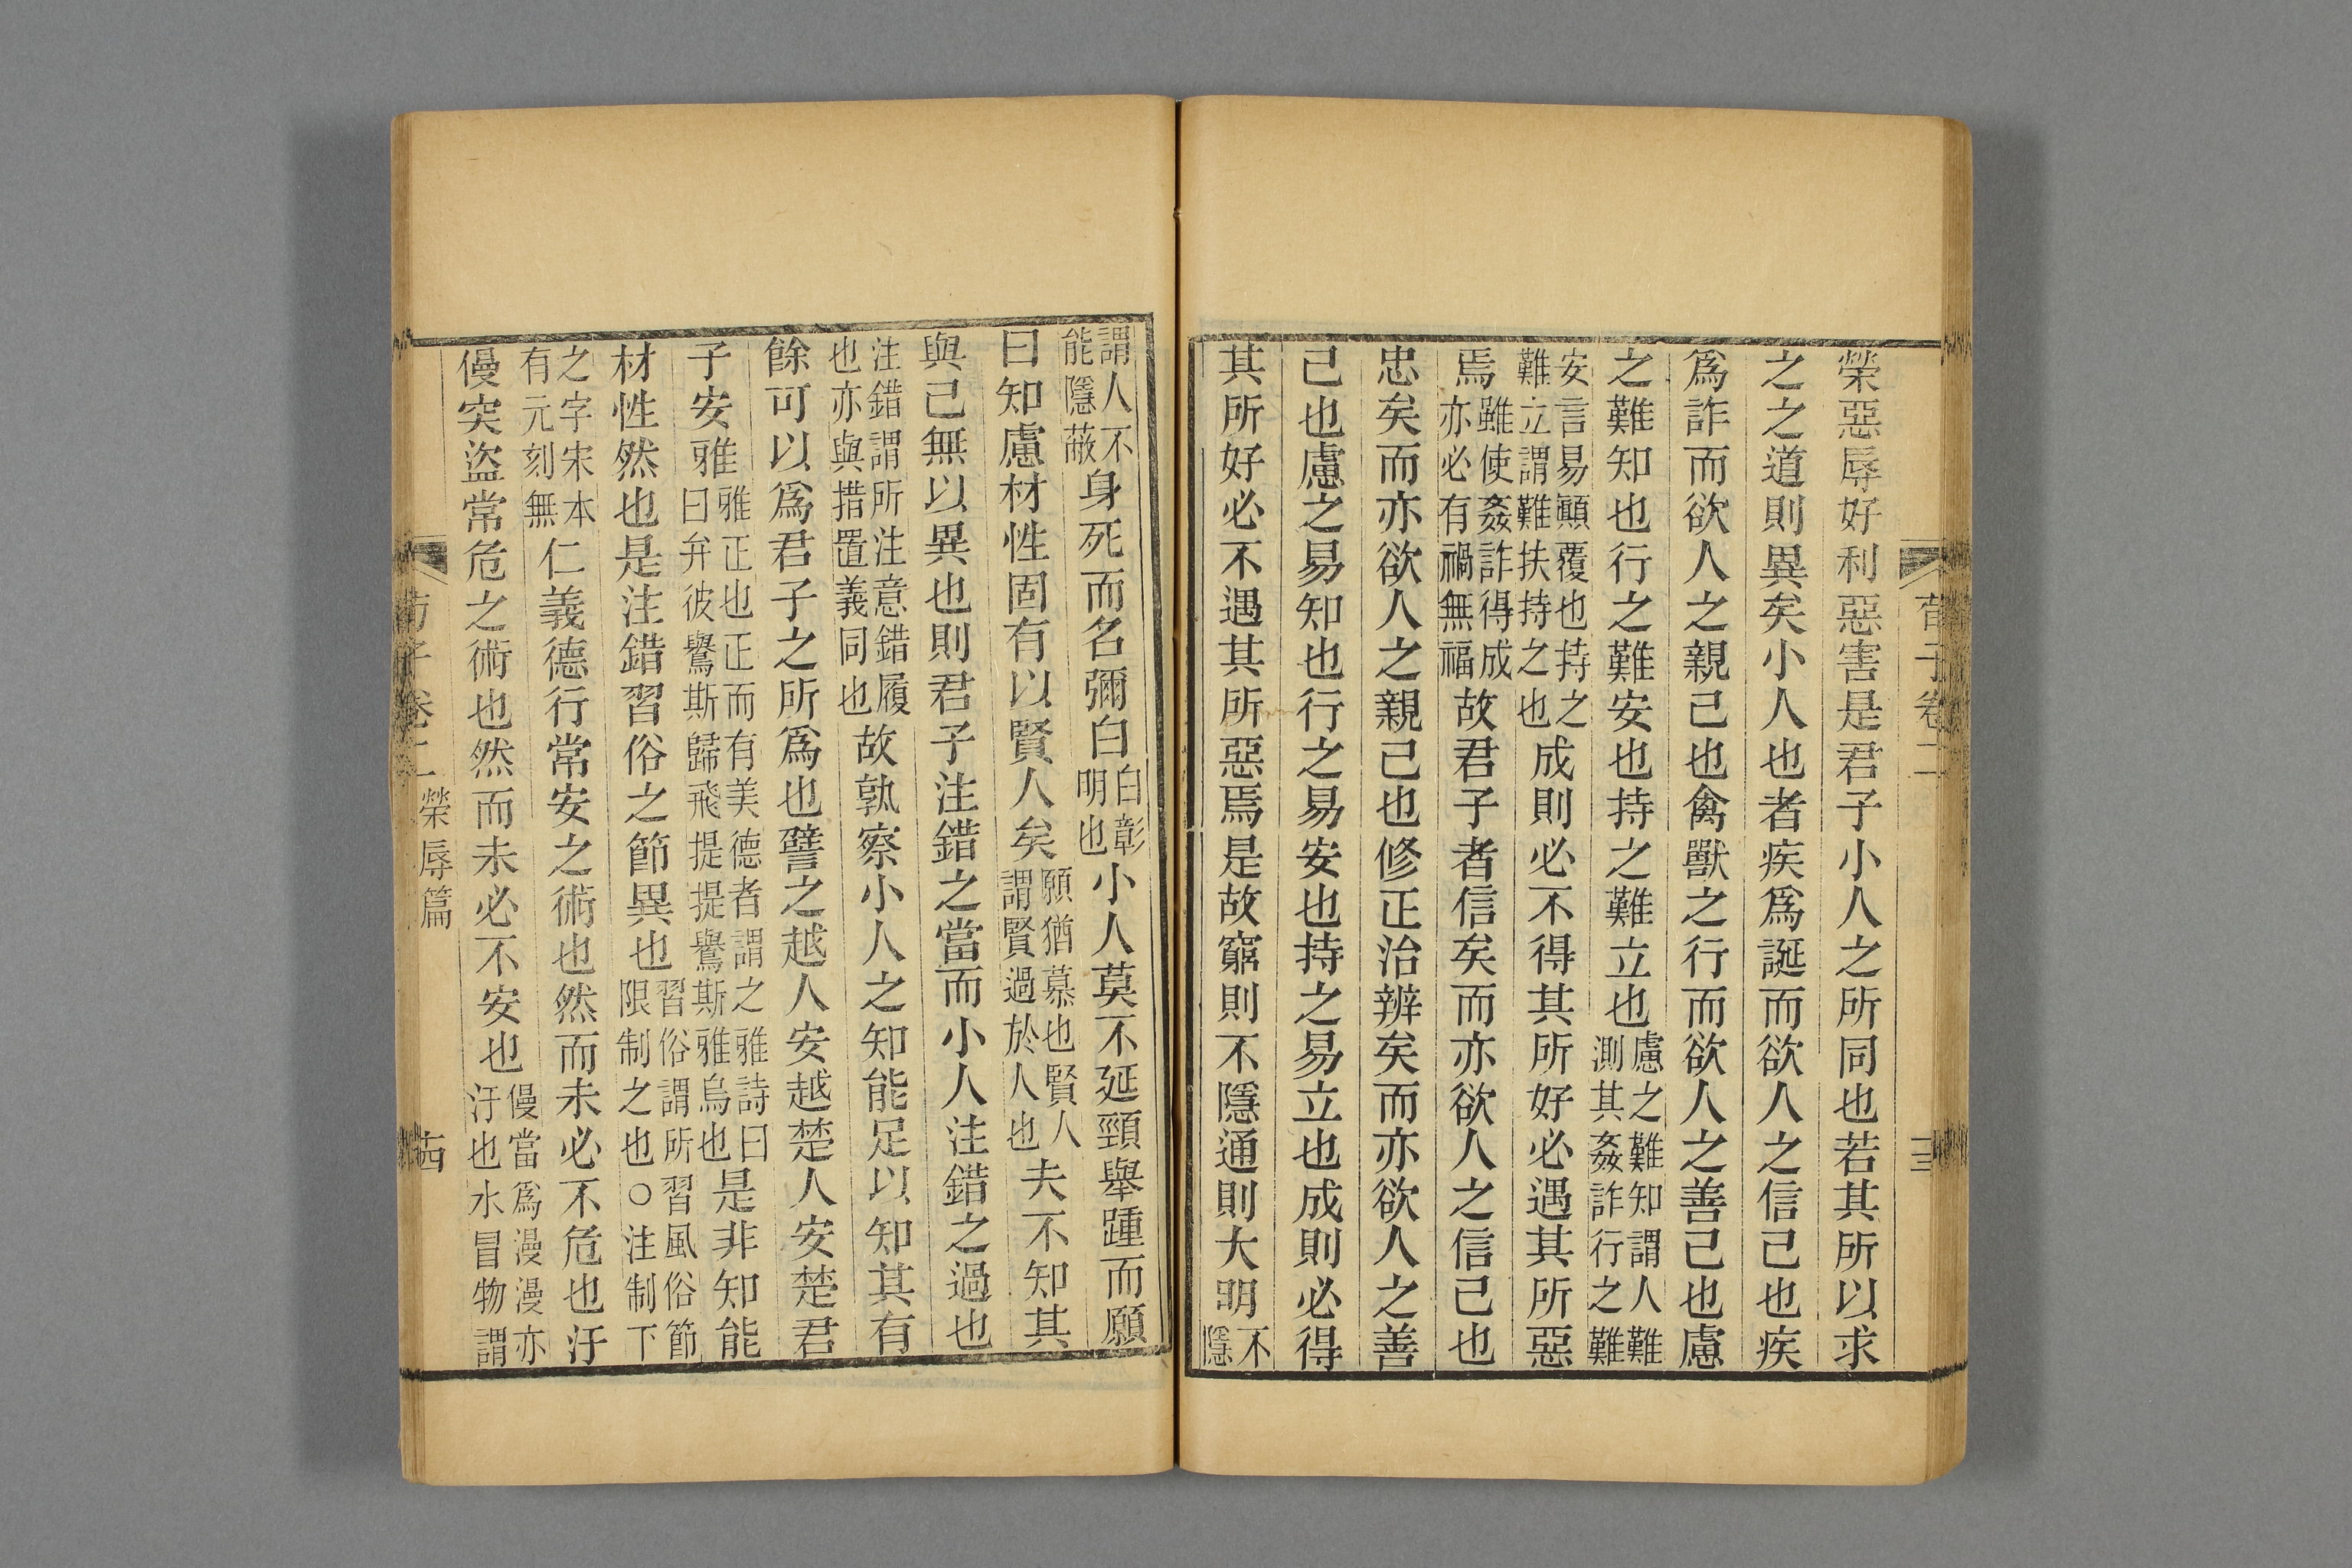 荀子卷二
十三
榮惡辱好利惡害是君子小人之所同也若其所以求
之之道則異矣小人也者疾爲誕而欲人之信己也疾
爲詐而欲人之親己也禽獸之行而欲人之善己也慮
之難知也行之難安也持之難立也慮之難知謂人難測其姦詐行之難
安言易顚覆也持之難立謂難扶持之也成則必不得其所好必遇其所惡
焉雖使姦詐得成亦必有禍無福故君子者信矣而亦欲人之信己也
忠矣而亦欲人之親己也修正治辨矣而亦欲人之善
己也慮之易知也行之易安也持之易立也成則必得
其所好必不遇其所惡焉是故窮則不隱通則大明不隱
謂人不能隱蔽身死而名彌白白彰明也小人莫不延頸舉踵而願
曰知慮材性固有以賢人矣願猶慕也賢人謂賢過於人也夫不知其
與己無以異也則君子注錯之當而小人注錯之過也
注錯謂所注意錯履也亦與措置義同也故孰察小人之知能足以知其有
餘可以爲君子之所爲也譬之越人安越楚人安楚君
子安雅雅正也正而有美德者謂之雅詩曰曰弁彼鸒斯歸飛提提鸒斯雅烏也是非知能
材性然也是注錯習俗之節異也習俗謂所習風俗節限制之也○注制下
之字宋本有元刻無仁義德行常安之術也然而未必不危也汙
僈突盜常危之術也然而未必不安也僈當爲漫漫亦汙也水冒物謂
荀子卷二
榮辱篇
十四